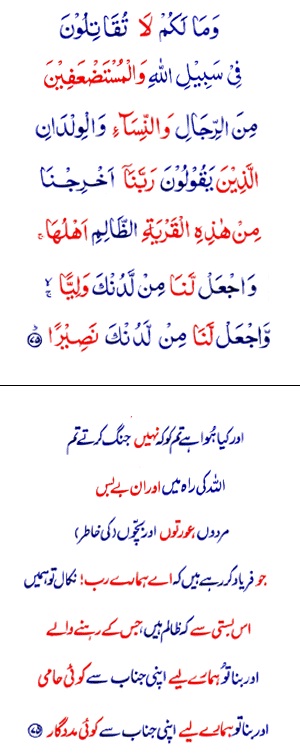 وَمَا لَكُمْ لَا تُقَاتِلُوْنَ
فِیْ سَبِیْلِ اللّٰهِ وَالْمُسْتَضْعَفِیْنَ
مِنَ الرِّجَالِ وَالنِّسَآءِ وَالْوِلْدَانِ
الَّذِیْنَ یَقُوْلُوْنَ رَبَّنَاۤ اَخْرِجْنَا
مِنْ هٰذِهِ الْقَرْیَةِ الظَّالِمِ اَهْلُهَا ۚ
وَاجْعَلْ لَّنَا مِنْ لَّدُنْكَ وَلِیًّا ۙۚ
وَّاجْعَلْ لَّنَا مِنْ لَّدُنْكَ نَصِیْرًا ؕ ﴿۷۵﴾
اور کیا ہُوا ہے تم کو کہ نہیں جنگ کرتے تم
اللہ کی راہ میں اور ان بے بس
مردوں، عورتوں اور بچّوں (کی خاطر)
جو فریاد کر رہے ہیں کہ اے ہمارے رب! نکال تو ہمیں
اس بستی سے کہ ظالم ہیں، جس کے رہنے والے
اور بنا تُو ہمارے لیے اپنی جناب سے کوئی حامی
اور بنا تو ہمارے لیے اپنی جناب سے کوئی مددگار ﴿۷۵﴾